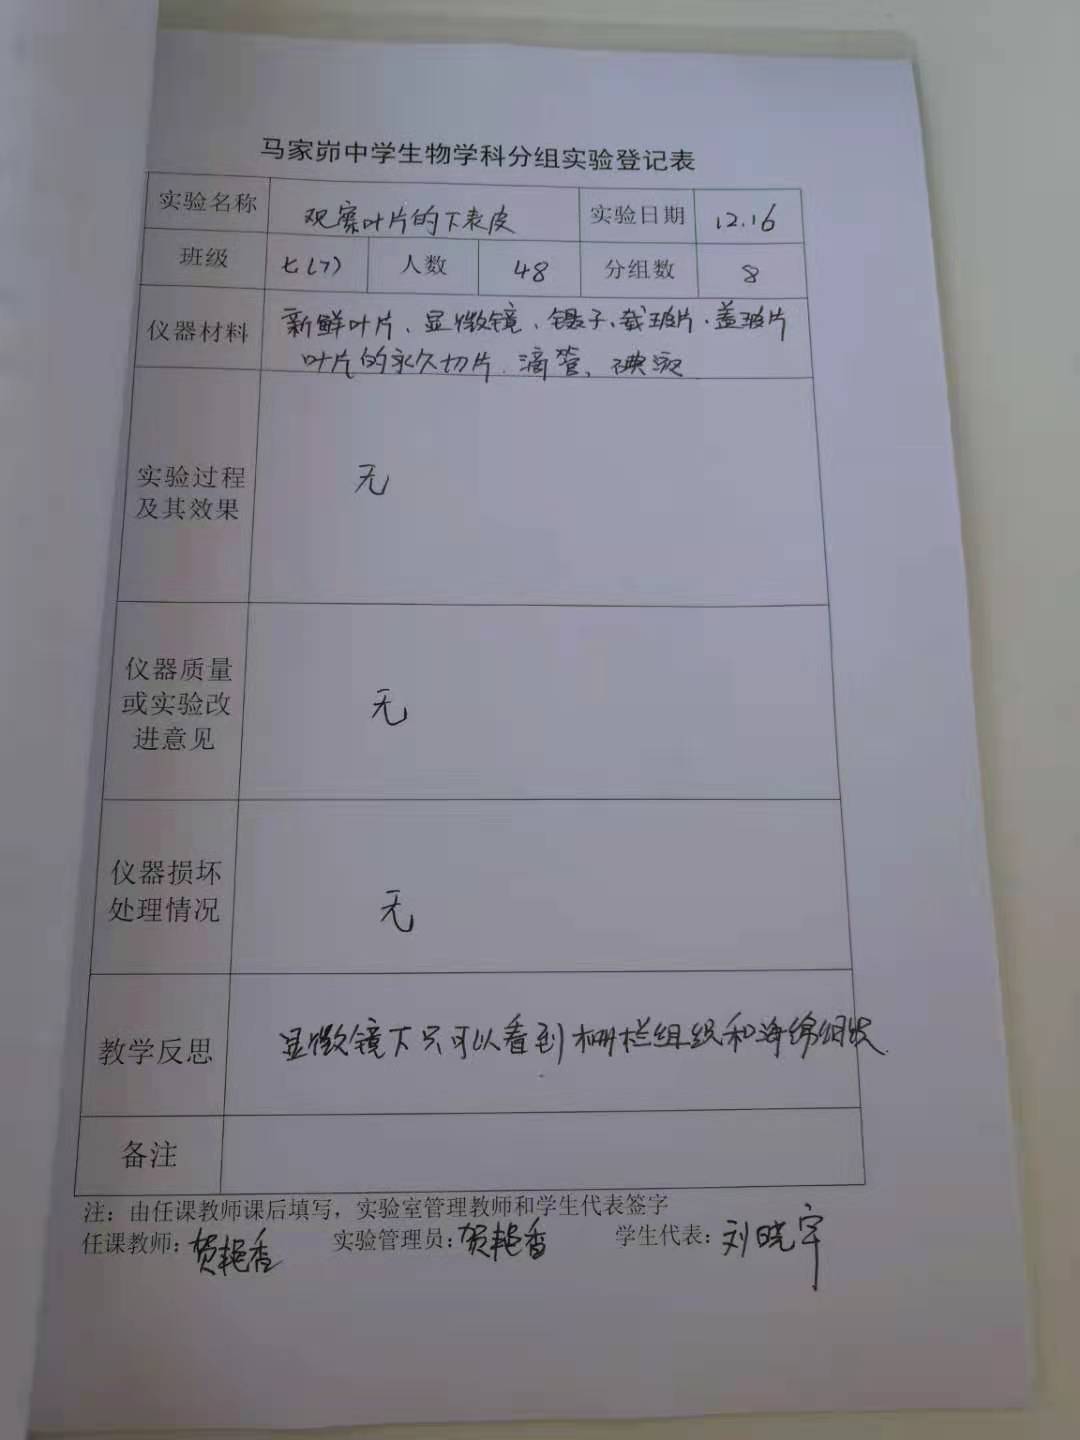 马家峁中学生物学科分组实验登记表
实验名称 观察叶片的下表皮 实验日期 12.16
班级 七(7) 人数 48 分组数 8
仪器材料 新鲜叶片、显微镜、镊子、载玻片、盖玻片
叶片的永久切片、滴管、碘液
实验过程
及其效果
无
仪器质量
或实验改
进意见
无
仪器损坏
处理情况
无
教学反思 显微镜下只可以看到栅栏组织和海绵组织.
备注
注：由任课教师课后填写，实验室管理教师和学生代表签字
任课教师：贺艳香 实验管理员：贺艳香 学生代表：刘晓宇